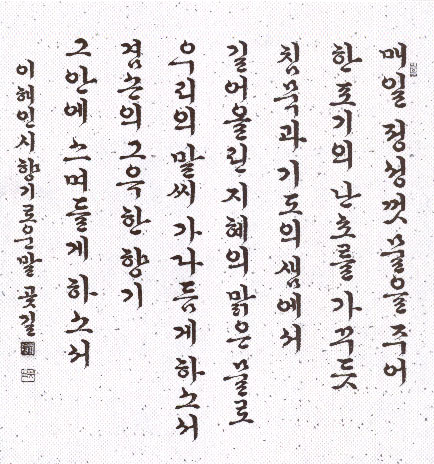 매일 정성껏 물을 주어
한 포기의 난초를 가꾸듯
침묵과 기도의 샘에서
길어올린 지혜의 맑은 물로
우리의 말씨 가다듬게 하소서
겸손의 그윽한 향기
그 안에 스며들게 하소서
이해인 시 향기로운 말 곶길